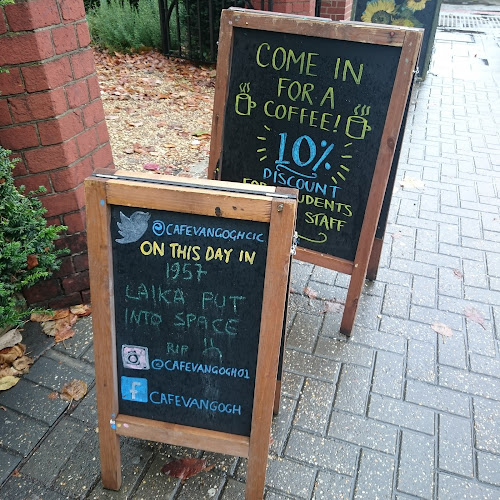 COME IN
FOR A
COFFEE!
10%
DISCOUNT
FOR STUDENTS
STAFF
@CAFEVANGOGHCIC
ON THIS DAY IN
1957
LAIKA PUT
INTO SPACE
RIP
@CAFEVANGOGH01
f CAFEVANGOGH